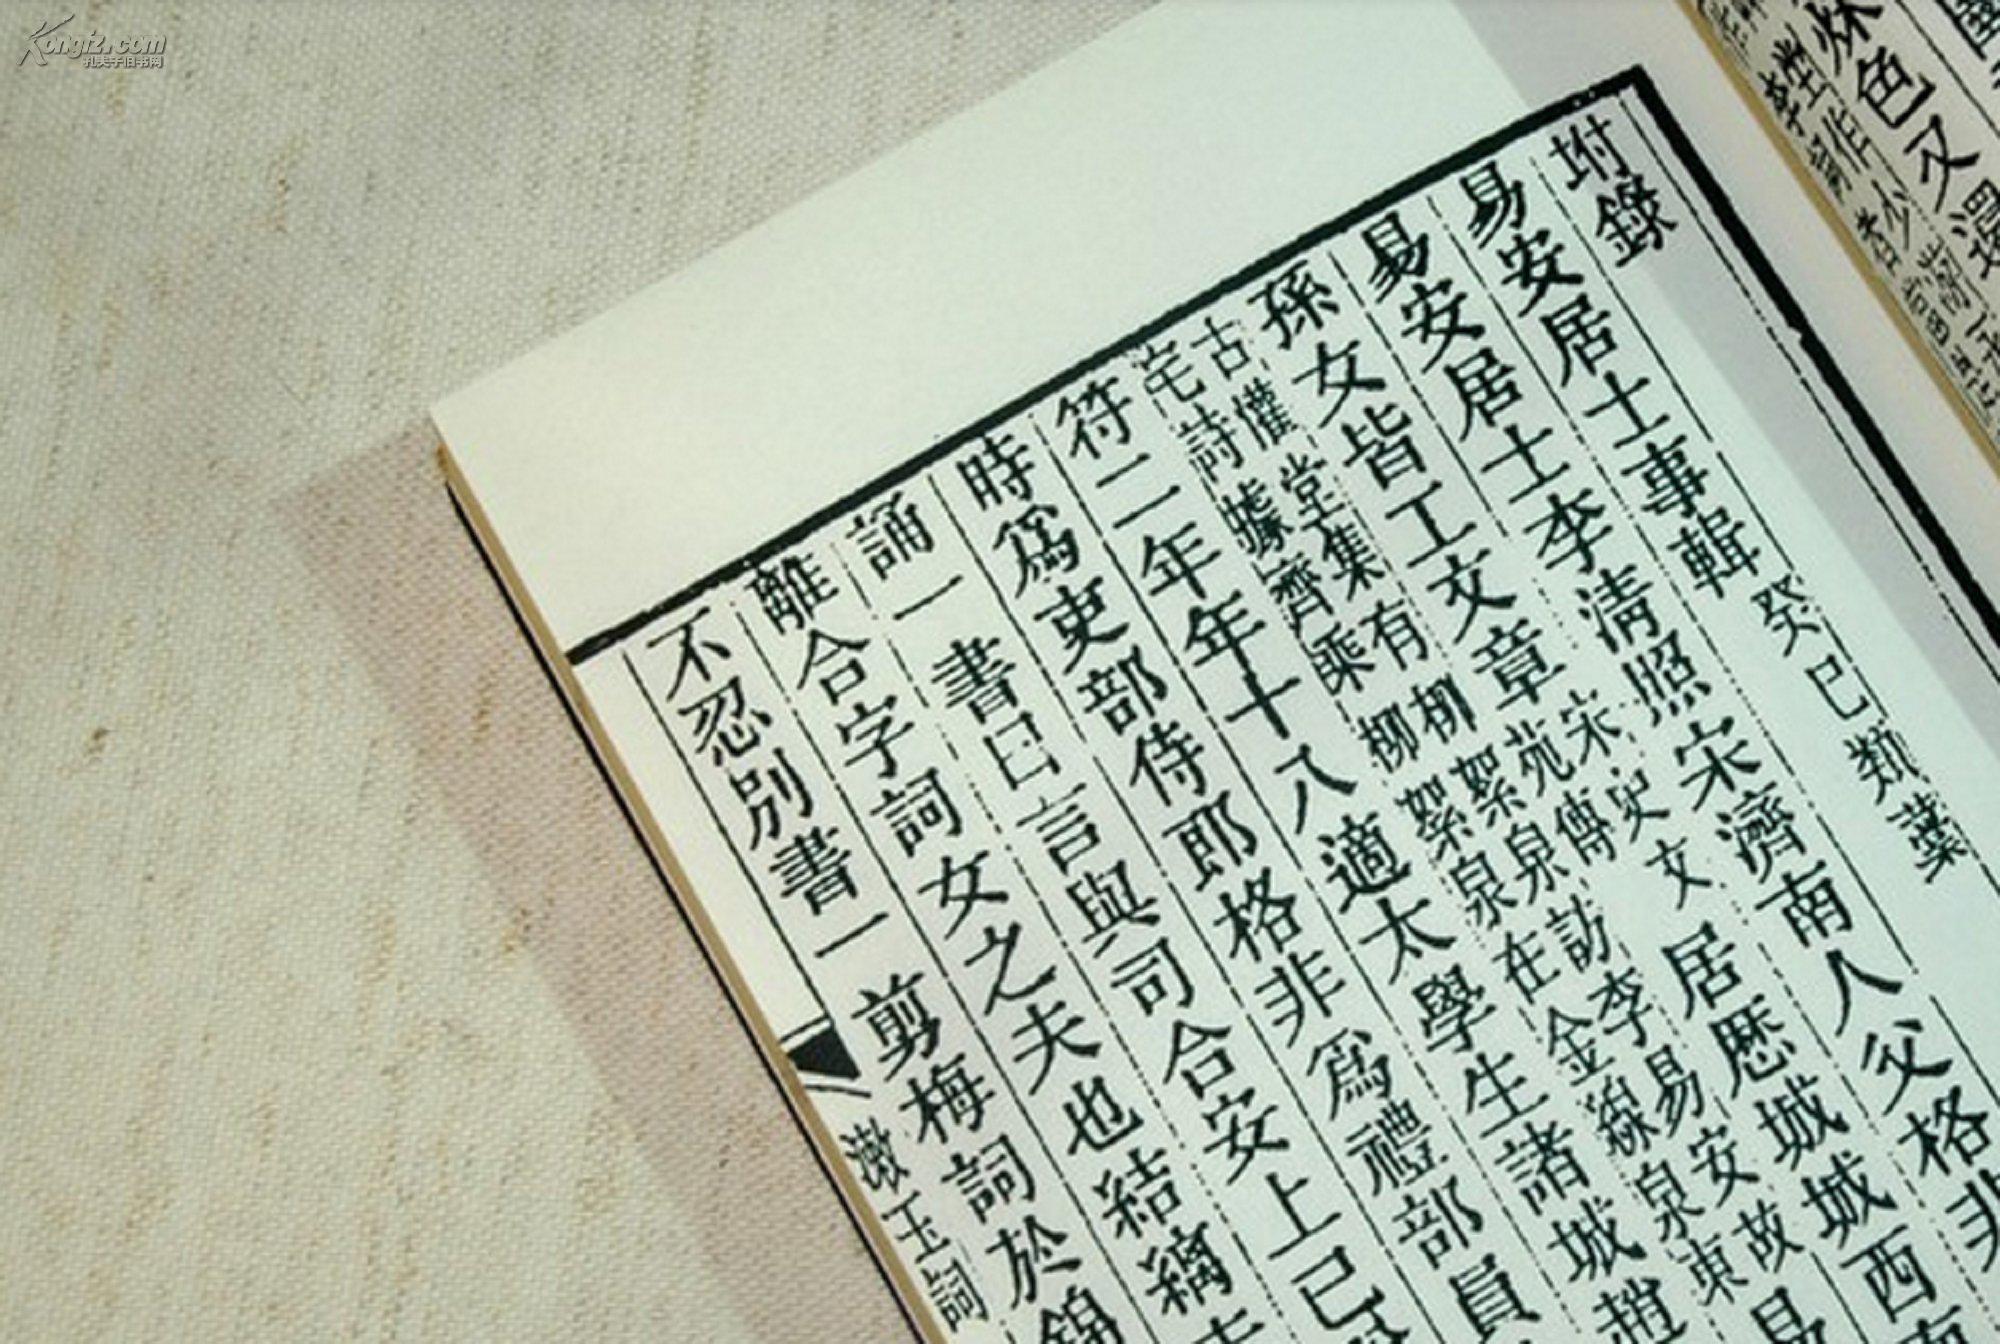 坿錄
易安居士事輯 癸巳類藳
易安居士李清照宋濟南人父格非
孫女皆工文章 宋史文苑傳 居歷城城西
古懽堂集有柳絮泉訪李易安故
宅詩據齊乘柳絮泉在金線泉東
符二年年十八適太學生諸城趙
時爲吏部侍郎格非爲禮部員
誦一書曰言與司合安上已
離合字詞女之夫也結縭
不忍別書一剪梅詞於錦
漱玉詞
色又
Kongfz.com
孔夫子旧书网